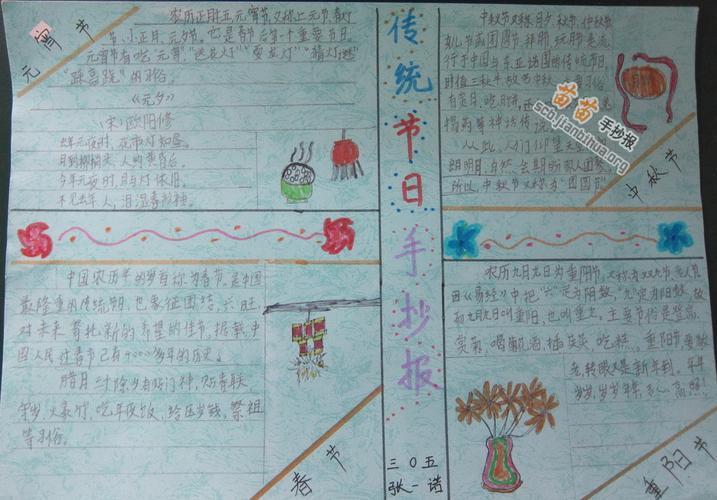 元宵节
农历正月十五元宵节又称上元节、春灯
节、小正月、元夕节。它是春节后第一个重要节日。
元宵节有吃元宵、"送花灯""耍龙灯""猜灯迷"
"踩高跷"的习俗。
《元夕》
(宋)欧阳修
去年元夜时,花市灯如昼。
月到柳梢头,人约黄昏后。
今年元夜时,月与灯依旧。
不见去年人,泪湿春衫袖。
传统节日手抄报
中秋节又称月夕、秋节、仲秋节
节是流
行于中国与东亚诸国的传统节日
时值三秋
苗苗手抄报
scb.jianbihua.org
从此,人们仰望天空
朗明月,自然会期盼家人团聚。
所以,中秋节又称为"团圆节"
中秋节
中国农历年的岁首称为春节,是中国
最隆重的传统节日,也象征团结、兴旺,
对未来寄托新的希望的佳节,据载,中
国人民过春节已有4000多年的历史。
腊月三十除夕有贴门神,贴春联,
守岁,火暴竹,吃年夜饭,给压岁钱,祭祖
等习俗。
春节
农历九月九日为重阳节,又称为双九节、老人节
因《易经》中把"六"定为阴数,"九"定为阳数,故
而九月九日叫重阳,也叫重九,主要节俗是登高,
赏菊,喝菊酒,插茱萸,吃糕,重阳节
先,转眼又是新年到。年年
岁岁,岁岁年年
重阳节
三〇五
张一诺